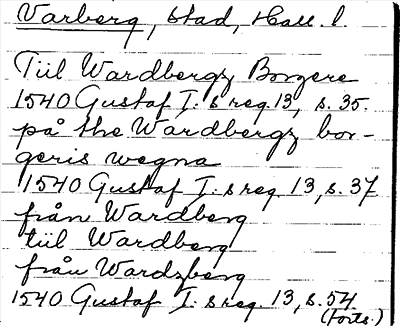 Varberg, stad, Hall. l.
Tiil Wardbergz Borgere
1540 Gustaf I:s reg. 13, s. 35.
på the Wardbergz bor-
geris wegna
1540 Gustaf I:s reg. 13, s. 37
från Wardberg
tiil Wardberg
från Wardzberg
1540 Gustaf I:s reg. 13, s. 54
(Forts.)